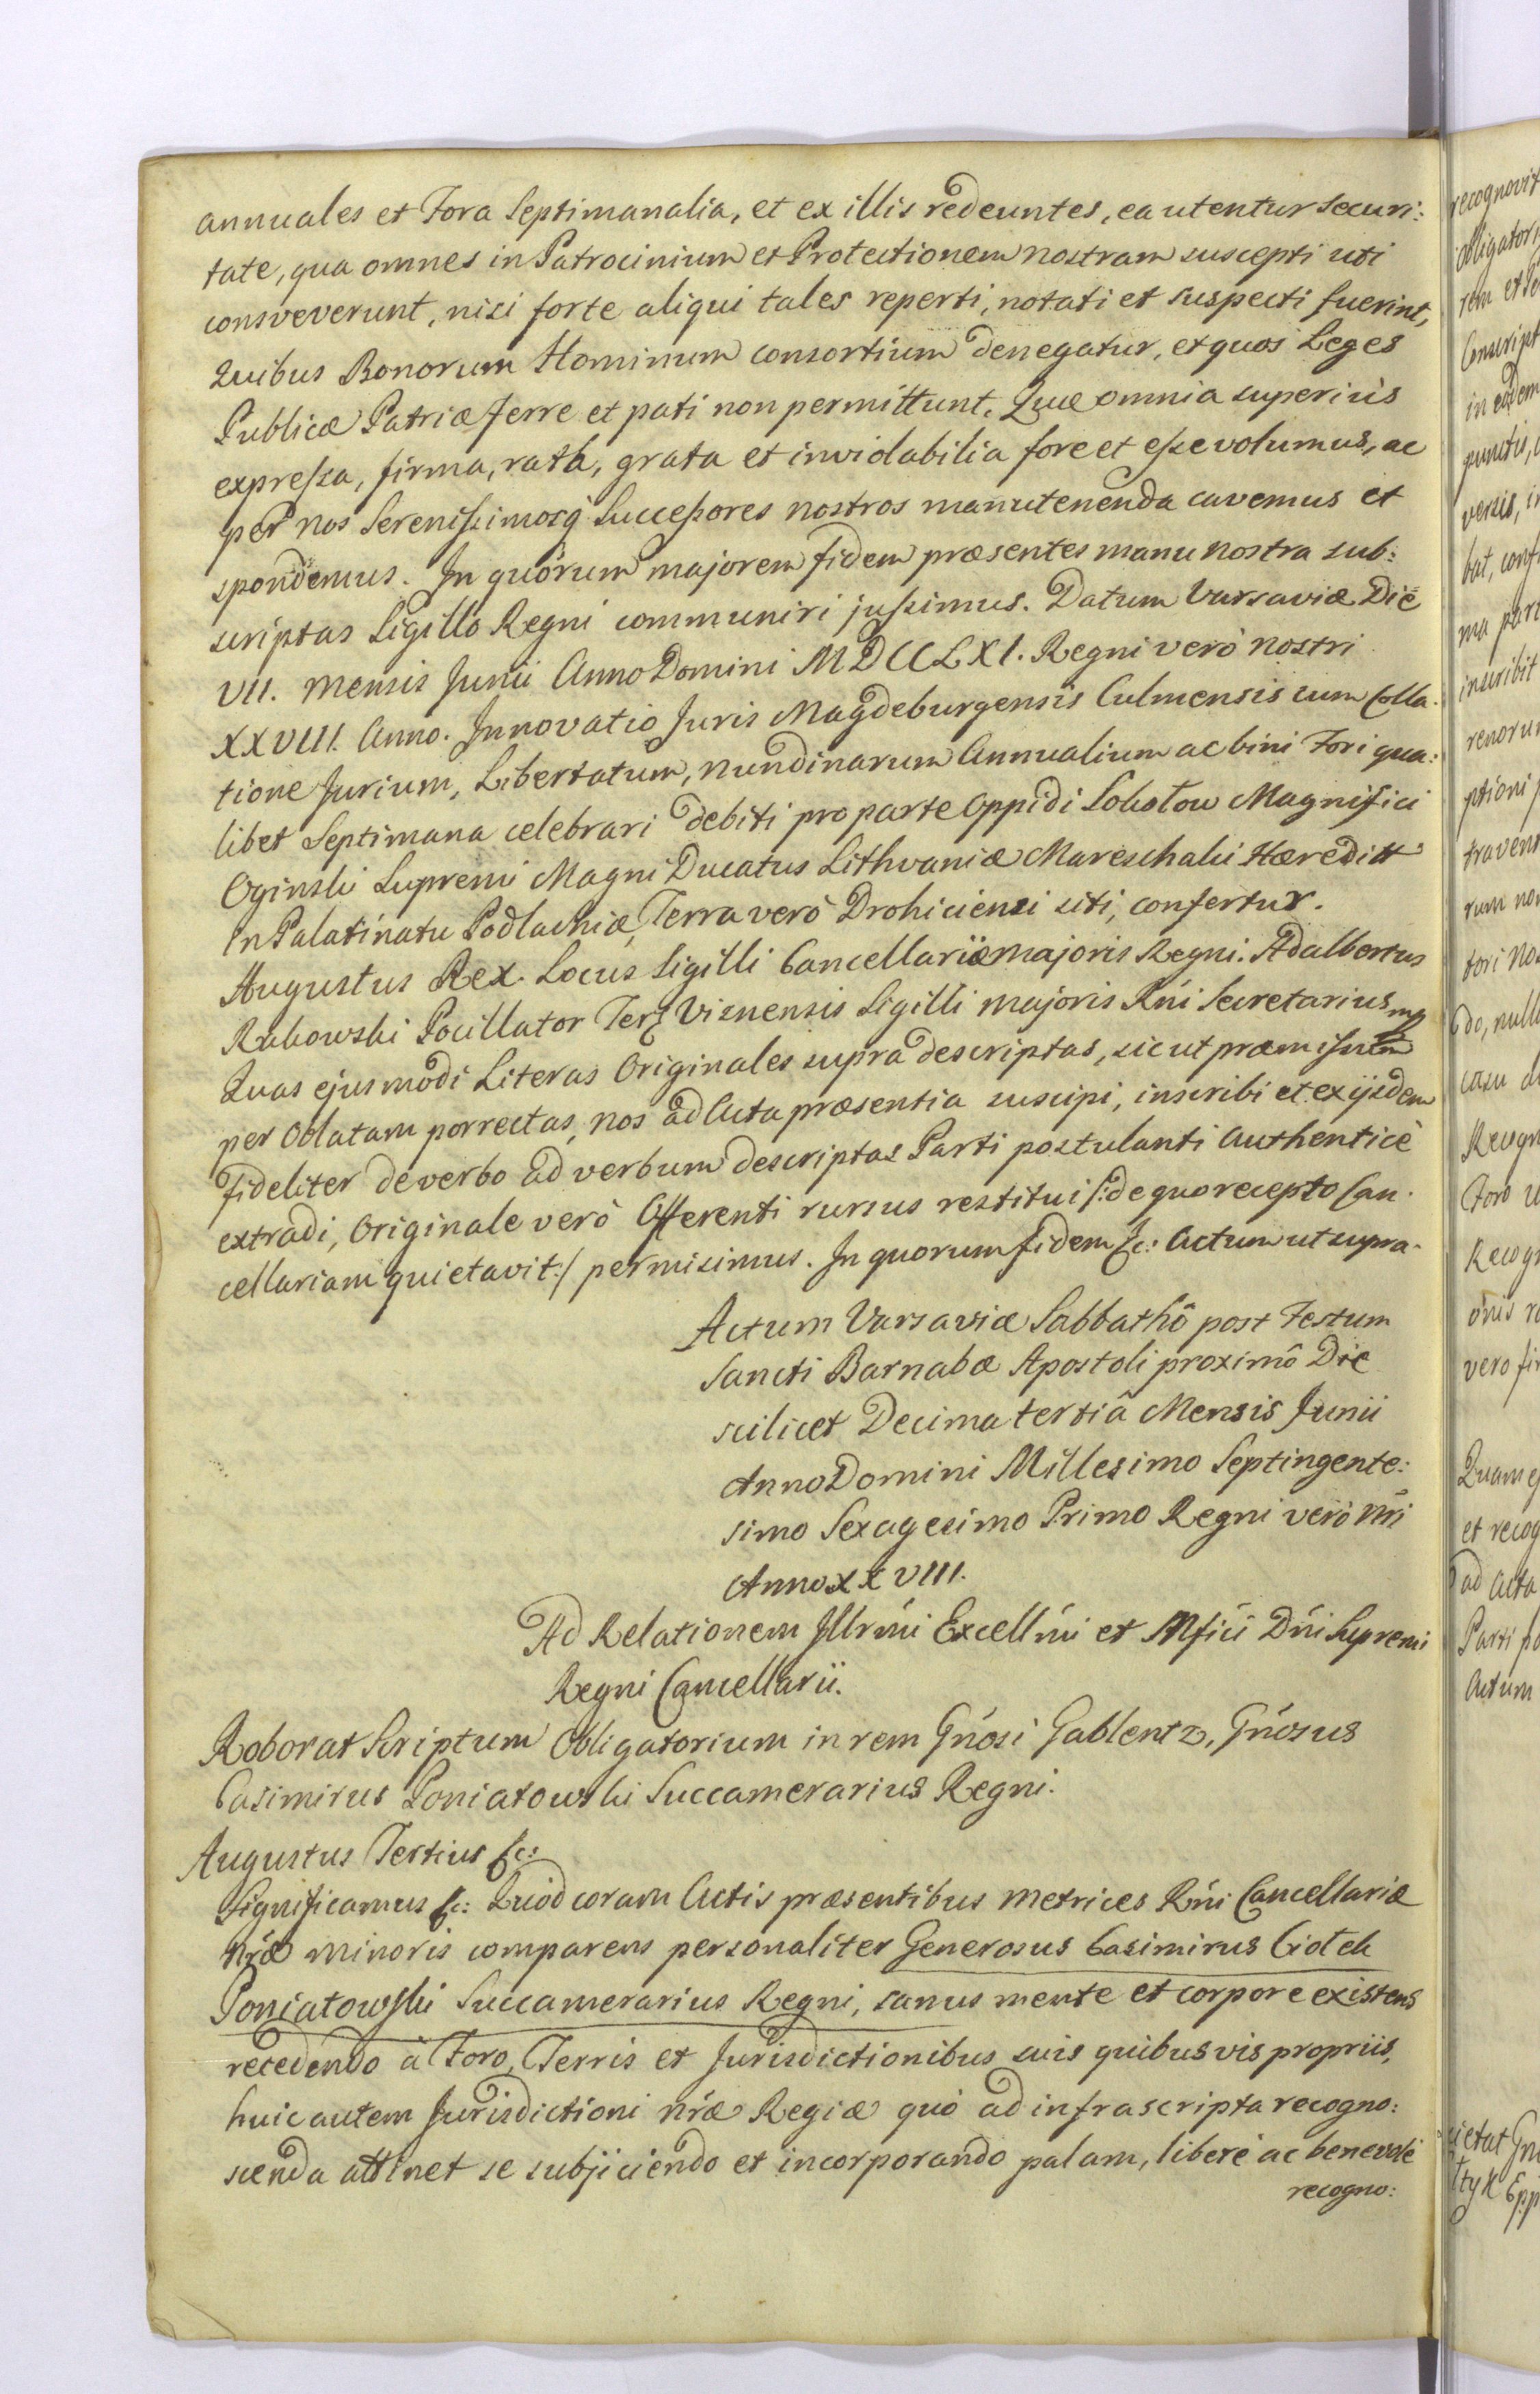 annuales et Fora Septimanalia, et ex illis redeuntes, ea utentur securi:
tate, qua omnes in Patrocinium et Protectionem nostram suscepti uti
consveverunt, nisi forte aliqui tales reperti, notati et suspecti fuerint,
Quibus Bonorum Hominum consortium denegatur, et quos Leges
Publicæ Patriæ ferre et pati non permittunt. Quæ omnia superiùs
expressa, firma, rata, grata et inviolabilia fore et esse volumus, ac
per nos Serenissimosq Successores nostros manutenenda cavemus et
spondemus. In quorum majorem fidem præsentes manu nostra sub:
scriptas Sigillo Regni communiri jussimus. Datum Varsaviæ Die
VII. Mensis Junii Anno Domini MDCCLXI. Regni verò nostri
XXVIII. Anno. Innovatio Juris Magdeburgensis Culmensis cum Colla:
tione Jurium, Libertatum, nundinarum Annualium ac bini Fori qua:
libet Septimana celebrari debiti pro parte Oppidi Sokołow Magnifici
Oginski Supremi Magni Ducatus Lithvaniæ Mareschalci Hæreditt
in Palatinatu Podlachiæ, Terra verò Drohiciensi siti, confertur.
Augustus Rex. Locus Sigilli Cancellariæ majoris Regni. Adalbertus
Rakowski Pocillator Terræ Visnensis Sigilli majoris Rńi Secretarius mp
Quas ejusmodi Literas Originales supra descriptas, sicut præmissum
per Oblatam porrectas, nos ad Acta præsentia suscipi, inscribi et ex ijsdem
fideliter de verbo ad verbum descriptas Parti postulanti Authenticè
extradi, Originale verò Offerenti rursus restitui /: de quo recepto Can:
cellariam quietavit :/ permisimus. In quorum fidem &c: Actum ut supra.
Actum Varsaviæ Sabbathô post Festum
Sancti Barnabæ Apostoli proximô Die
scilicet Decima tertiâ Mensis Junii
Anno Domini Millesimo Septingente:
simo Sexagesimo Primo Regni verò nri
Anno XXVIII.
Ad Relationem Illrmi Excellmi et Mfici Dńi Supremi
Regni Cancellarii.
Roborat Scriptum Obligatorium in rem Gńosi Gablentz, Gńosus
Casimirus Poniatowski Succamerarius Regni.
Augustus Tertius &c:
Significamus &c: Quod coram Actis præsentibus Metrices Rńi Cancellariæ
nræ minoris comparens personaliter Generosus Casimirus Ciołek
Poniatowski Succamerarius Regni, sanus mente et corpore existens
recedendo à Foro, Terris et Jurisdictionibus suis quibusvis propriis,
huic autem Jurisdictioni nræ Regiæ quò ad infrascripta recogno:
scenda attinet se subjiciendo et incorporando palam, liberè ac benevolè
recogno: